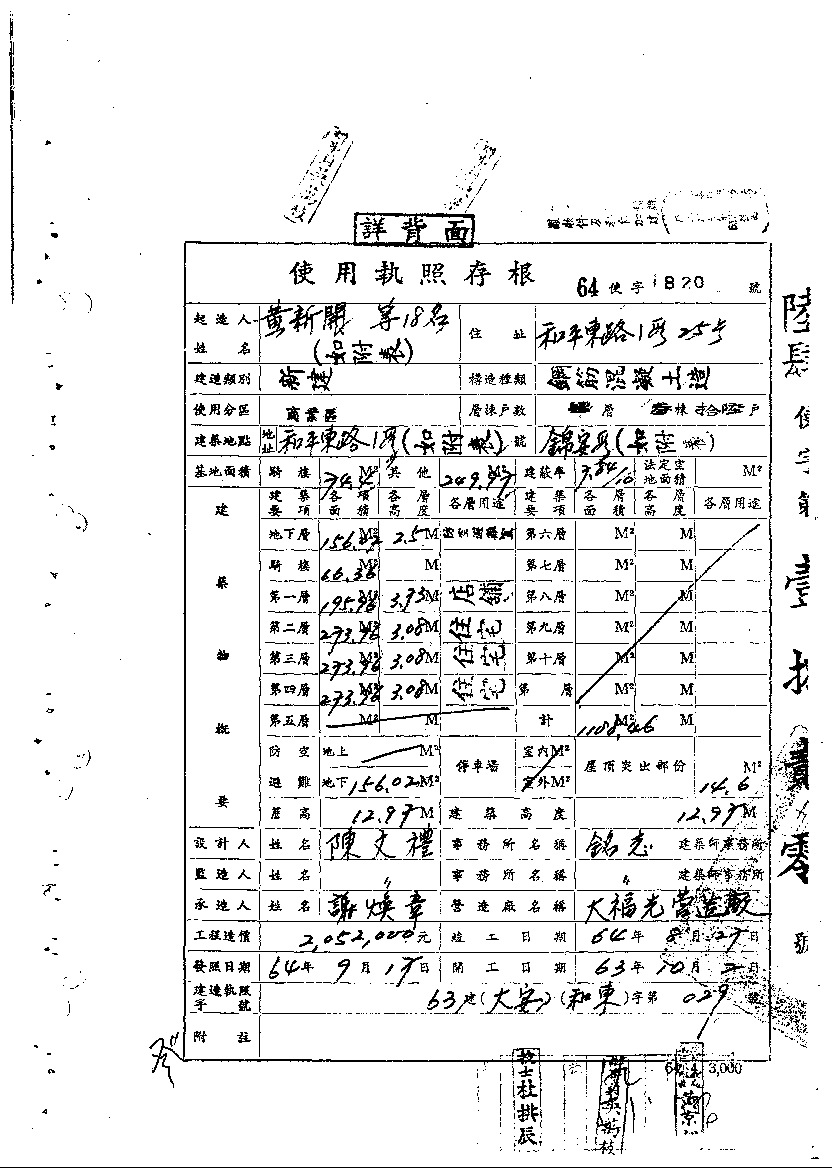 詳背面
使用執照存根
64使字1820號
起造人姓名 黃新開 等18名(如附表) 住址 和平東路1段25号
建造類別 新建 構造種類 鋼筋混凝土造
使用分區 商業區 層棟戶數 層 棟 戶
建築地點 地址 和平東路1段(如附表)號 錦安段(如附表)
基地面積 騎樓 M² 其他 M² 建蔽率 法定空地面積 M²
建築物概要
建築要項 各項面積 各層高度 各層用途 建築要項 各層面積 各層高度 各層用途
地下層 156.02 M² 2.5 M 第六層 M² M
騎樓 66.36 M² M 第七層 M² M
第一層 195.96 M² 3.73 M 店舖 第八層 M² M
第二層 273.96 M² 3.08 M 住宅 第九層 M² M
第三層 273.96 M² 3.08 M 住宅 第十層 M² M
第四層 273.96 M² 3.08 M 住宅 第 層 M² M
第五層 M² M 計 M² M
防空避難 地上 M² 停車場 室內M² 屋頂突出部份 M²
地下 156.02 M² 室外M² 14.6
簷高 12.97 M 建築高度 12.97 M
設計人 姓名 陳文禮 事務所名稱 銘志 建築師事務所
監造人 姓名 〃 事務所名稱 〃 建築師事務所
承造人 姓名 謝煥章 營造廠名稱 大福光營造廠
工程造價 2,052,000元 竣工日期 64年8月27日
發照日期 64年9月17日 開工日期 63年10月2日
建造執照字號 63建(大安)(和東)字第029號
附註
64 4 3,000
技士杜排辰
陸肆使字第壹捌貳零號